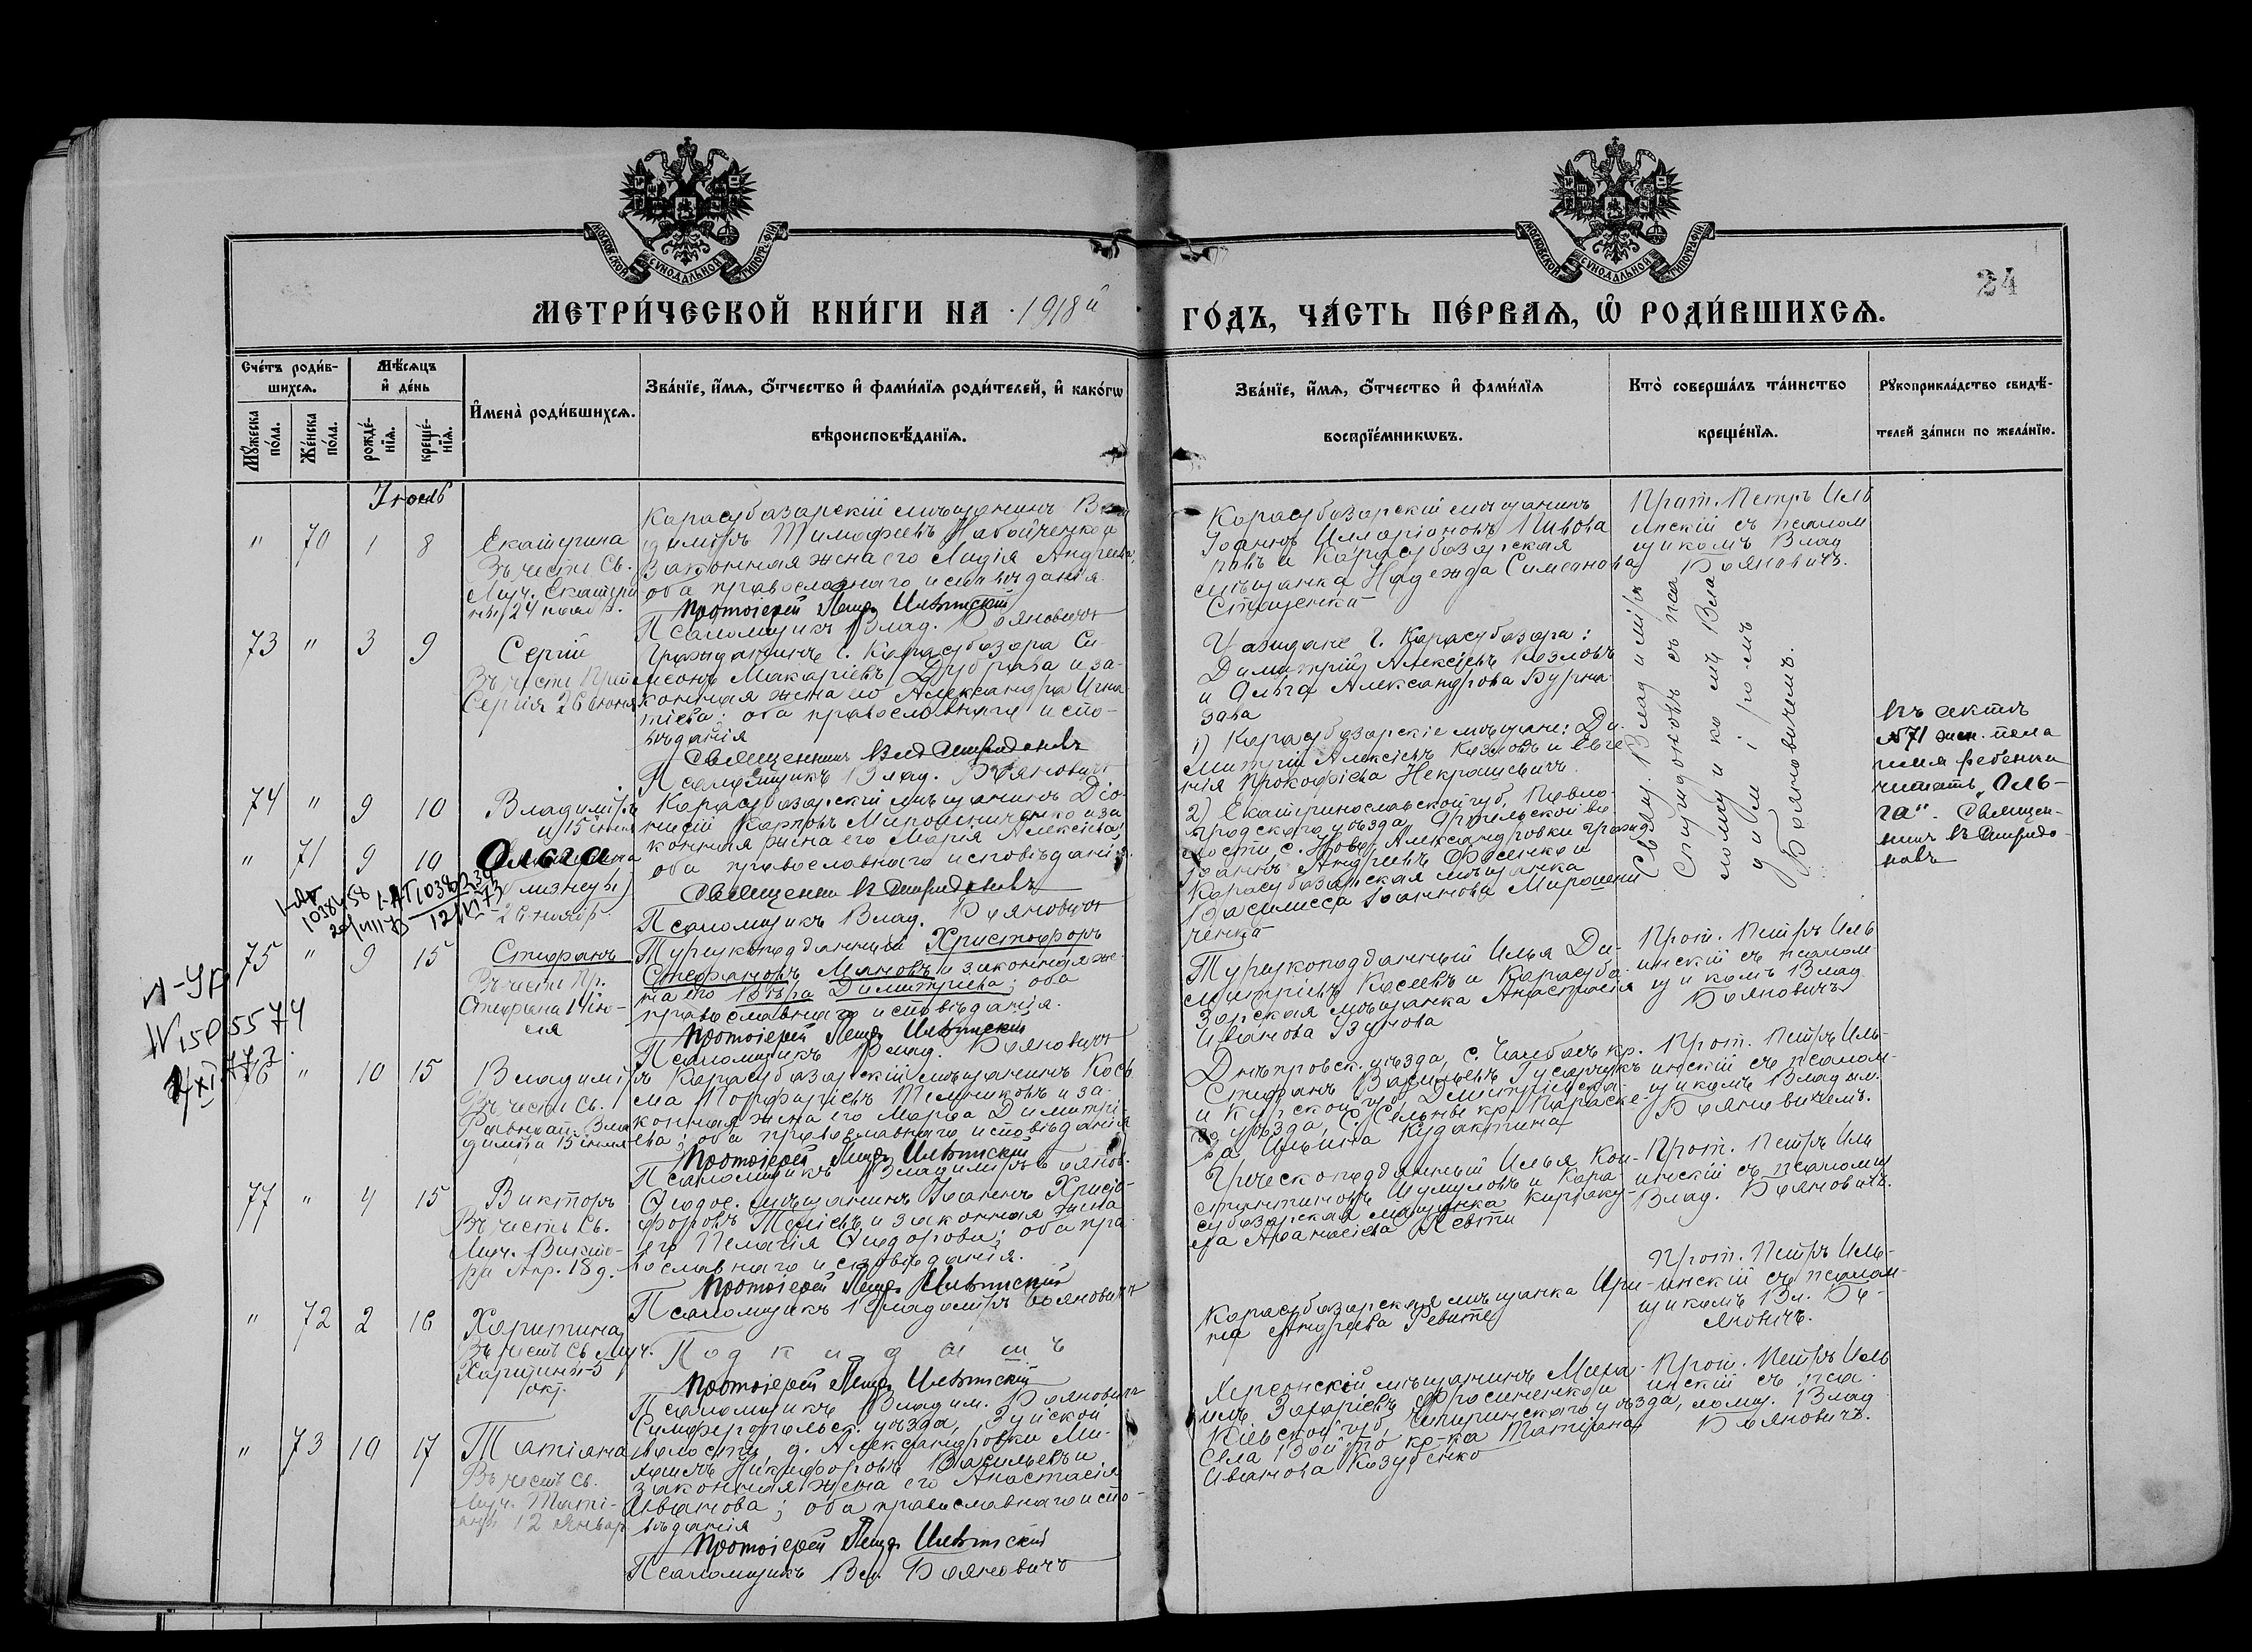 МОСКОВСКОЙ СУНОДАЛЬНОЙ ТИПОГРАФІИ
МОСКОВСКОЙ СУНОДАЛЬНОЙ ТИПОГРАФІИ
24
МЕТРИ́ЧЕСКОЙ КНИ́ГИ НА 1918й
ГО́ДЪ, ЧА́СТЬ ПЕ́РВАѦ, Ѡ҆ РОДИ́ВШИХСѦ.
Сче́тъ роди́в-
шихсѧ.
Мꙋ́жеска по́ла.
Же́нска по́ла.
Мѣ́сѧцъ
и҆ де́нь
рожде́-
нїѧ.
креще́-
нїѧ.
И҆мена̀ роди́вшихсѧ.
Зва́нїе, и҆́мѧ, ѻ҆́тчество и҆ фами́лїѧ роди́телей, и҆ како́гѡ
вѣроисповѣ́данїѧ.
Зва́нїе, и҆́мѧ, ѻ҆́тчество и҆ фами́лїѧ
воспрїе́мникѡвъ.
Кто̀ соверша́лъ та́инство
креще́нїѧ.
Рꙋкоприкла́дство свидѣ́-
телей за́писи по жела́нїю.
Іюль
" 70 1 8
Екатерина
Въ честь Св.
Муч. Екатери
ны 24 нояб.
Карасубазарскій мѣщанинъ Вла
диміръ Тимофеевъ Набойченко и
законная жена его Лидія Андреева,
оба православнаго исповѣданія.
Протоіерей Петръ Ильинскій
Псаломщикъ Влад. Бояновичъ
Карасубазарскій мѣщанинъ
Іоаннъ Илларіоновъ
и Карасубазарская
мѣщанка Надежда Симеонова
Стеценко
Прот. Петръ Иль
инскій съ псалом
щикомъ Влад
Бояновичъ.
73 " 3 9
Сергій
Въ честь Преп
Сергія 26 Іюня
Гражданинъ г. Карасубазара Си-
меонъ Макаріевъ Дуброва и за-
конная жена его Александра Игна-
тіева; оба православнаго испо-
вѣданія
Священникъ Влад Спиридоновъ
Псаломщикъ Влад. Бояновичъ
Граждане г. Карасубазара:
Димитрій Алексіевъ Козловъ
и Ольга Александрова Бурна-
зова
Свящ. Владиміръ
Спиридоновъ съ пса
ломщикомъ Вла
диміромъ
Бояновичемъ.
74 " 9 10
Владиміръ
15 іюля
" 71 9 10
Ольга
(близнецы)
26 ноябр.
Карасубазарскій мѣщанинъ Діо-
нисій Карповъ Мирошниченко и за
конная жена его Марія Алексіева,
оба православнаго исповѣданія.
Священникъ В Спиридоновъ
Псаломщикъ Влад. Бояновичъ
1) Карасубазарскіе мѣщане: Ди-
митрій Алексіевъ Козловъ и Евге
нія Прокофіева Некрашевичъ.
2) Екатеринославской губ. Павло-
градскаго уѣзда, во-
лости, с. Ново Александровки гражд
Іоаннъ Андреевъ Фоменко и
Карасубазарская мѣщанка
Василисса Іоаннова Мирошни
ченко
Въ актѣ
№71 жен. пола
имя ребенка
читать „Оль-
га". Священ-
никъ В Спиридо-
новъ
1-АТ
1038458
1-АТ 1038239
12/VI 73
75 " 9 15
Стефанъ
Въ честь Пр.
Стефана 14 ію-
ля
Турецкоподданный Христофоръ
Стефановъ Мановъ и законная же-
на его Вѣра Димитріева; оба
православнаго исповѣданія.
Протоіерей Петръ Ильинскій
Псаломщикъ Влад. Бояновичъ
Турецкоподданный Илья Ди-
митріевъ Косеевъ и Карасуба-
зарская мѣщанка Анастасія
Иванова Узунова
Прот. Петръ Иль
инскій съ псалом
щикомъ Влад
Бояновичъ
76 " 10 15
Владиміръ
Въ честь Св.
Равноап. Вла
диміра 15 іюля
Карасубазарскій мѣщанинъ Кось
ма Порфиріевъ Мельниковъ и за-
конная жена его Марфа Димитрі-
ева; оба православнаго исповѣданія
Протоіерей Петръ Ильинскій
Псаломщикъ Владиміръ Боянов.
Днѣпровск. уѣзда, с. Чалбасъ кр.
Стефанъ Васильевъ Гусарчукъ
и Курской губ. Дмитріевска-
го уѣзда, с. кр. Параске-
ва Ильина Кудактина
Прот. Петръ Иль-
инскій съ псалом-
щикомъ Владим.
Бояновичемъ.
77 " 4 15
Викторъ
Въ честь Св.
Муч. Викто-
ра Апр. 18 д.
Ѳеодос. мѣщанинъ Іоаннъ Христо-
форовъ и законная жена
его Пелагія Ѳеодорова; оба пра
вославнаго исповѣданія.
Протоіерей Петръ Ильинскій
Псаломщикъ Владиміръ Бояновичъ
Греческоподданный Илья Кон-
стантиновъ Шумуловъ и Кара
субазарская мѣщанка Киріаку-
ла Аѳанасіева
Прот. Петръ Иль
инскій съ псаломщ
Влад. Бояновичъ.
" 72 2 16
Харитина
Въ честь Св Муч.
Харитины 5
окт.
Подкидышъ
Протоіерей Петръ Ильинскій
Псаломщикъ Владим. Бояновичъ
Карасубазарская мѣщанка Ири-
на Андреева
Прот. Петръ Иль-
инскій съ псалом-
щикомъ Вл. Бо-
яновичъ.
" 73 10 17
Татіана
Въ честь Св.
Муч. Тати-
аны 12 Январ
Симферопольск. уѣзда, Зуйской
волости, д. Александровки Ми-
хаилъ Никифоровъ Васильевъ и
законная жена его Анастасія
Иванова; оба православнаго испо-
вѣданія
Протоіерей Петръ Ильинскій
Псаломщикъ Вл. Бояновичъ
Херсонскій мѣщанинъ Миха-
илъ Захаріевъ и
Кіевской губ. Чигиринскаго уѣзда,
села кр-ка Татіана
Иванова Козубенко
Прот. Петръ Иль
инскій съ пса-
ломщ. Влад
Бояновичъ.